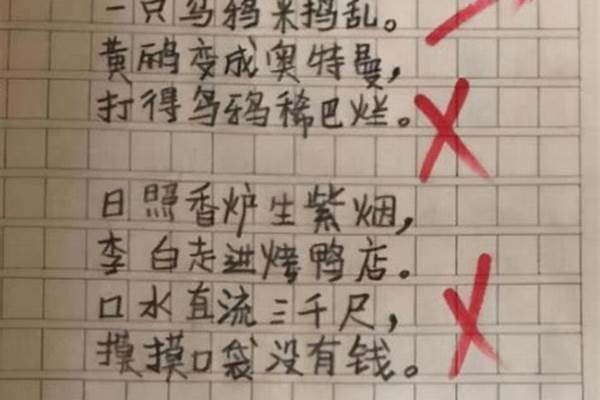 一只乌鸦来捣乱。
黄鹂变成奥特曼,
打得乌鸦稀巴烂。
日照香炉生紫烟,
李白走进烤鸭店。
口水直流三千尺,
摸摸口袋没有钱。